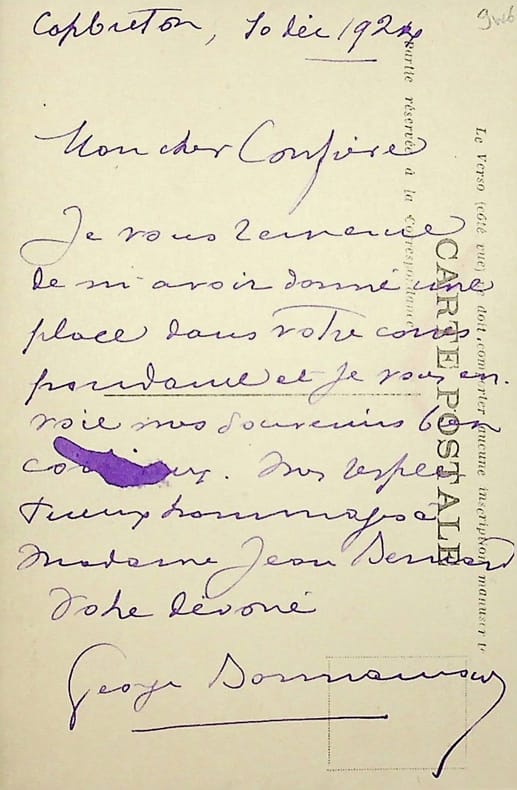 Capbreton, 10 déc 1924
Mon cher Confrère
Je vous remercie
de m'avoir donné une
place dans votre corres
pondance et je vous en
voie mes souvenirs bien
Mes respec
tueux hommages à
Madame Jean Bernard
Votre dévoué
George
CARTE POSTALE
Partie réservée à la Correspondance
Le Verso (côté vue) ne doit comporter aucune inscription manuscrite